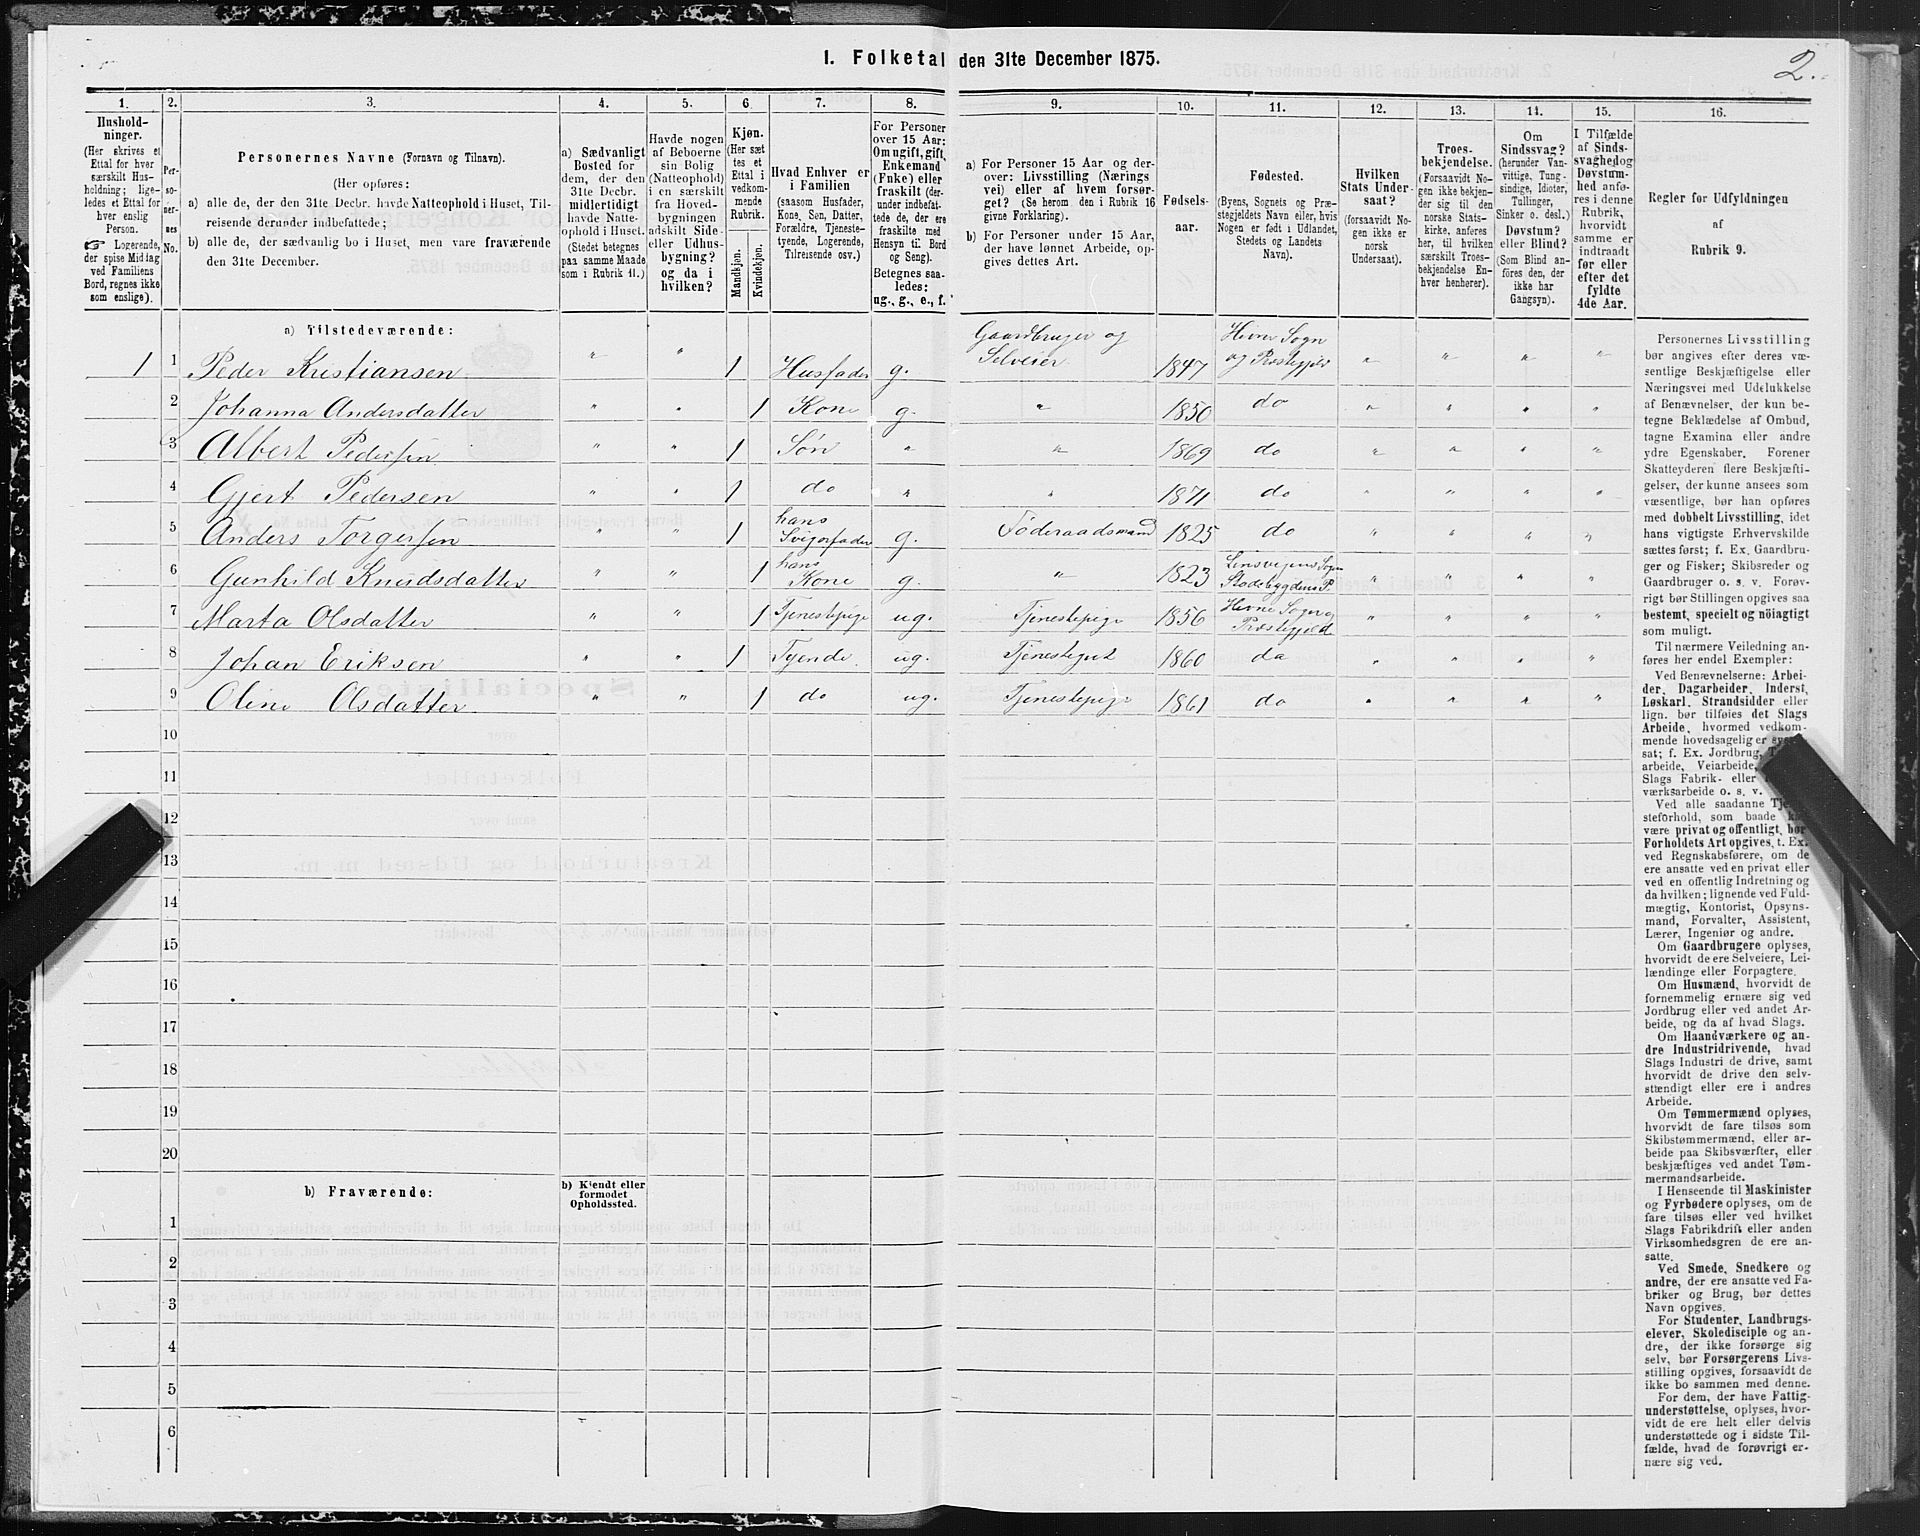 I. Folketal den 31te December 1875.
2.
1.
2.
3.
4.
5.
6.
7.
8.
9.
10.
11.
12.
13.
14.
15.
16.
Hushold-
ninger.
(Her skrives et
Ettal for hver
særskilt Hus-
holdning; lige-
ledes et Ettal for
hver enslig
Person.
☞ Logerende,
der spise Middag
ved Familiens
Bord, regnes ikke
som enslige).
Per-
so-
ner-
nes
No.
Personernes Navne (Fornavn og Tilnavn).
(Her opføres:
a) alle de, der den 31te Decbr. havde Natteophold i Huset, Til-
reisende derunder indbefattede;
b) alle de, der sædvanlig bo i Huset, men vare fraværende
den 31te December.
a) Sædvanligt
Bosted for
dem, der den
31te Decbr.
midlertidigt
havde Natte-
ophold i Huset.
(Stedet betegnes
paa samme Maade
som i Rubrik 11.)
Havde nogen
af Beboerne
sin Bolig
(Natteophold)
i en særskilt
fra Hoved-
bygningen
adskilt Side-
eller Udhus-
bygning?
og da i
hvilken?
Kjøn.
(Her sæt
tes et
Ettal i
vedkom-
mende
Rubrik.
Mandkjøn.
Kvindekjøn.
Hvad Enhver er
i Familien
(saasom Husfader,
Kone, Søn, Datter,
Forældre, Tjeneste-
tyende, Logerende,
Tilreisende osv.)
For Personer
over 15 Aar:
Om ugift, gift,
Enkemand
(Enke) eller
fraskilt (der-
under indbefat-
tede de, der ere
fraskilte med
Hensyn til Bord
og Seng).
Betegnes saa-
ledes:
ug., g., e., f.
a) For Personer 15 Aar og der-
over: Livsstilling (Nærings
vei) eller af hvem forsør-
get? (Se herom den i Rubrik 16
givne Forklaring).
b) For Personer under 15 Aar,
der have lønnet Arbeide, op-
gives dettes Art.
Fødsels-
aar.
Fødested.
(Byens, Sognets og Præ-
stegjeldets Navn eller, hvis
Nogen er født i Udlandet,
Stedets og Landets
Navn).
Hvilken
Stats Under-
saat?
(forsaavidt No-
gen ikke er
norsk
Undersaat).
Troes-
bekjendelse.
(Forsaavidt No-
gen ikke bekjen-
der sig til den
norske Stats-
kirke, anføres
her, til hvilken
særskilt Troes-
bekjendelse En-
hver henhører).
Om
Sindssvag?
(herunder Van-
vittige, Tung-
sindige, Idioter,
Tullinger,
Sinker o. desl.)
Døvstum?
eller Blind?
(Som Blind an-
føres den, der
ikke har
Gangsyn).
I Tilfælde
af Sinds-
svaghed og
Døvstum-
hed anfø-
res i denne
Rubrik,
hvorvidt
samme er
indtraadt
før eller
efter det
fyldte
4de Aar.
Regler for Udfyldningen
af
Rubrik 9.
a) Tilstedeværende:
1 1 Peder Kristiansen " " 1 Husfader g. Gaardbruger og Selveier 1847 Hevne Sogn og Præstegjeld " " " "
2 Johanna Andersdatter " " 1 Kone g. " 1850 do " " " "
3 Albert Pedersen " " 1 Søn " " 1869 do " " " "
4 Gjert Pedersen " " 1 do " " 1871 do " " " "
5 Anders Torgersen " " 1 hans Svigerfader g. Føderaadsmand 1825 do " " " "
6 Gunhild Knudsdatter " " 1 hans Kone g. " 1823 Lensvigens Sogn Stadsbygdens P. " " " "
7 Marta Olsdatter " " 1 Tjenestepige ug. Tjenestepige 1856 Hevne Sogn og Præstegjeld " " " "
8 Johan Eriksen " " 1 Tyende ug. Tjenestegut 1860 do " " " "
9 Oline Olsdatter " " 1 do ug. Tjenestepige 1861 do " " " "
10
11
12
13
14
15
16
17
18
19
20
b) Fraværende:
b) Kjendt eller
formodet
Opholdssted.
1
2
3
4
5
6
Personernes Livsstilling
bør angives efter deres væ-
sentlige Beskjæftigelse eller
Næringsvei med Udelukkelse
af Benævnelser, der kun be-
tegne Beklædelse af Ombud,
tagne Examina eller andre
ydre Egenskaber. Forener
Skatteyderen flere Beskjæfti-
gelser, der kunne ansees som
væsentlige, bør han opføres
med dobbelt Livsstilling, idet
hans vigtigste Erhvervskilde
sættes først; f. Ex. Gaardbru-
ger og Fisker; Skibsreder og
Gaardbruger o. s. v. Forøv-
rigt bør Stillingen opgives saa
bestemt, specielt og nöiagtigt
som muligt.
Til nærmere Veiledning an-
føres her endel Exempler:
Ved Benævnelserne: Arbei-
der, Dagarbeider, Inderst,
Løskarl, Strandsidder eller
lign. bør tilføies det Slags
Arbeide, hvormed vedkom-
mende hovedsagelig er sys-
sat; f. Ex. Jordbrug, T
arbeide, Veiarbeide,
Slags Fabrik- eller
værksarbeide o. s. v.
Ved alle saadanne Tje
steforhold, som baade
være privat og offentligt, bør
Forholdets Art opgives, t. Ex.
ved Regnskabsførere, om de
ere ansatte ved en privat eller
ved en offentlig Indretning og
da hvilken; lignende ved Fuld-
mægtig, Kontorist, Opsyns-
mand, Forvalter, Assistent,
Lærer, Ingeniør og andre.
Om Gaardbrugere oplyses,
hvorvidt de ere Selveiere, Lei-
lændinge eller Forpagtere.
Om Husmænd, hvorvidt de
fornemmelig ernære sig ved
Jordbrug eller ved andet Ar-
beide, og da af hvad Slags.
Om Haandværkere og an-
dre Industridrivende, hvad
Slags Industri de drive, samt
hvorvidt de drive den selv-
stændigt eller ere i andres
Arbeide.
Om Tømmermænd oplyses,
hvorvidt de fare tilsøs som
Skibstømmermænd, eller ar-
beide paa Skibsværfter, eller
beskjæftiges ved andet Tøm-
mermandsarbeide.
I Henseende til Maskinister
og Fyrbødere oplyses, om de
fare tilsøs eller ved hvilket
Slags Fabrikdrift eller anden
Virksomhedsgren de ere an-
satte.
Ved Smede, Snedkere og
andre, der ere ansatte ved Fa-
briker og Brug, bør dettes
Navn opgives.
For Studenter, Landbrugs-
elever, Skoledisciple og an-
dre, der ikke forsørge sig
selv, bør Forsørgerens Livs-
stilling opgives, forsaavidt de
ikke bo sammen med denne.
For dem, der have Fattig-
understøttelse, oplyses, hvor-
vidt de ere helt eller delvis
understøttede og i sidste Til-
fælde, hvad de forøvrigt er-
nære sig ved.